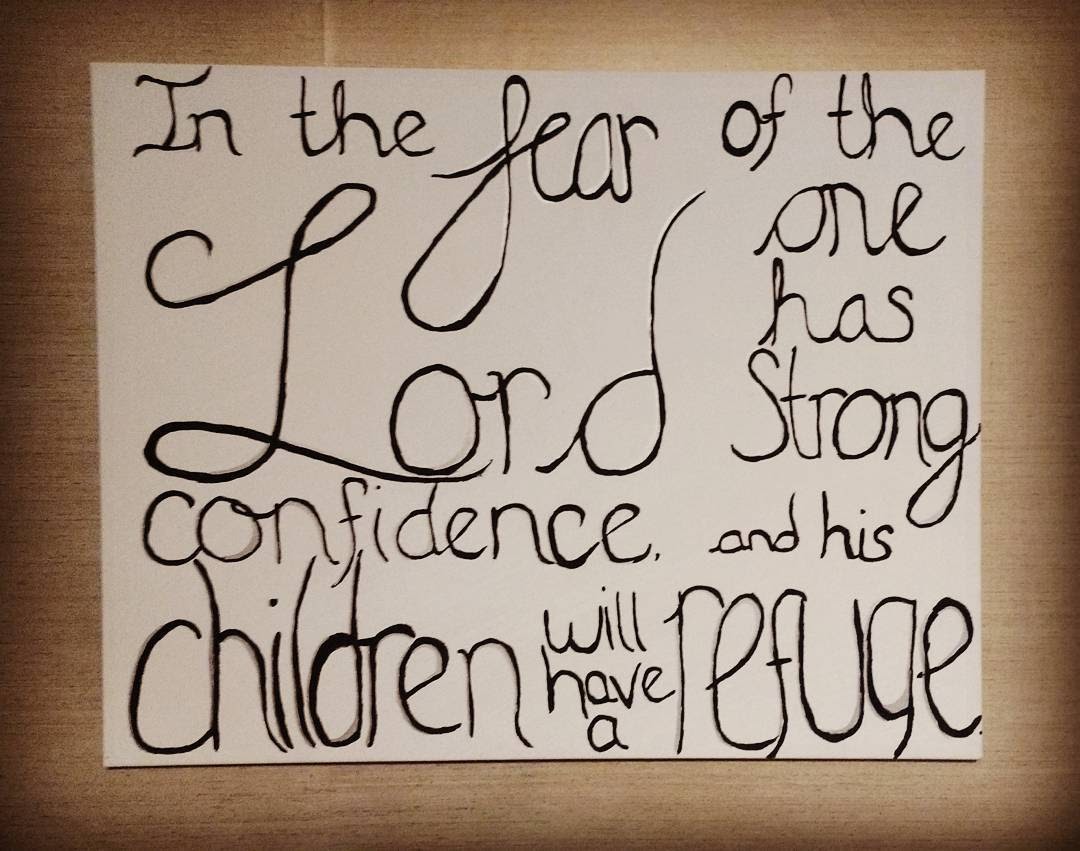 In the fear of the
Lord one
has
Strong
confidence. and his
children will have a refuge.